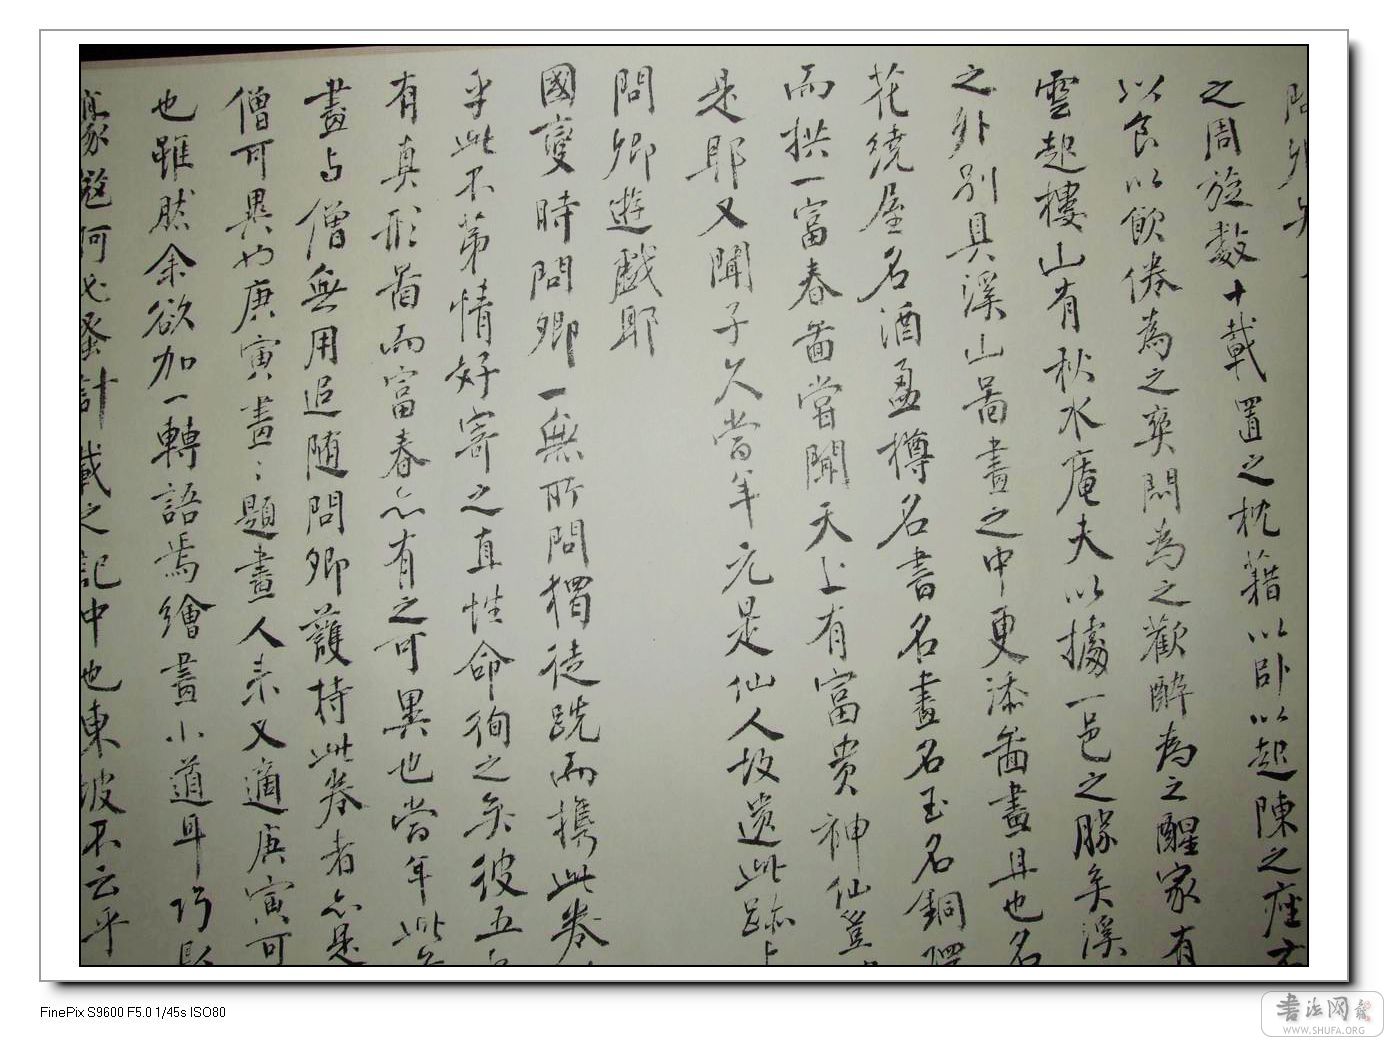 問卿
之周旋數十載置之枕籍以卧以起陳之座右
以食以飲倦為之爽悶為之歡醉為之醒家有
雲起樓山有秋水庵夫以據一邑之勝矣溪
之外別具溪山啚畫之中更添啚畫且也名
花繞屋名酒盈樽名書名畫名玉名銅環
而拱一富春啚當聞天上有富貴神仙豈
是耶又聞子久當年元是仙人故遺此跡與
問卿遊戲耶
國變時問卿一無所問獨徒跣而携此卷
乎此不第情好寄之直性命徇之矣彼五
有真形啚而富春亦有之可異也當年此
畫与僧無用追随問卿護持此卷者亦是
僧可異也庚寅畫畫題畫人来又適庚寅可
也雖然余欲加一轉語焉繪畫小道耳巧取
豪奪何必蚤計載之記中也東坡不云乎
FinePix S9600 F5.0 1/45s ISO80
書法网
WWW.SHUFA.ORG